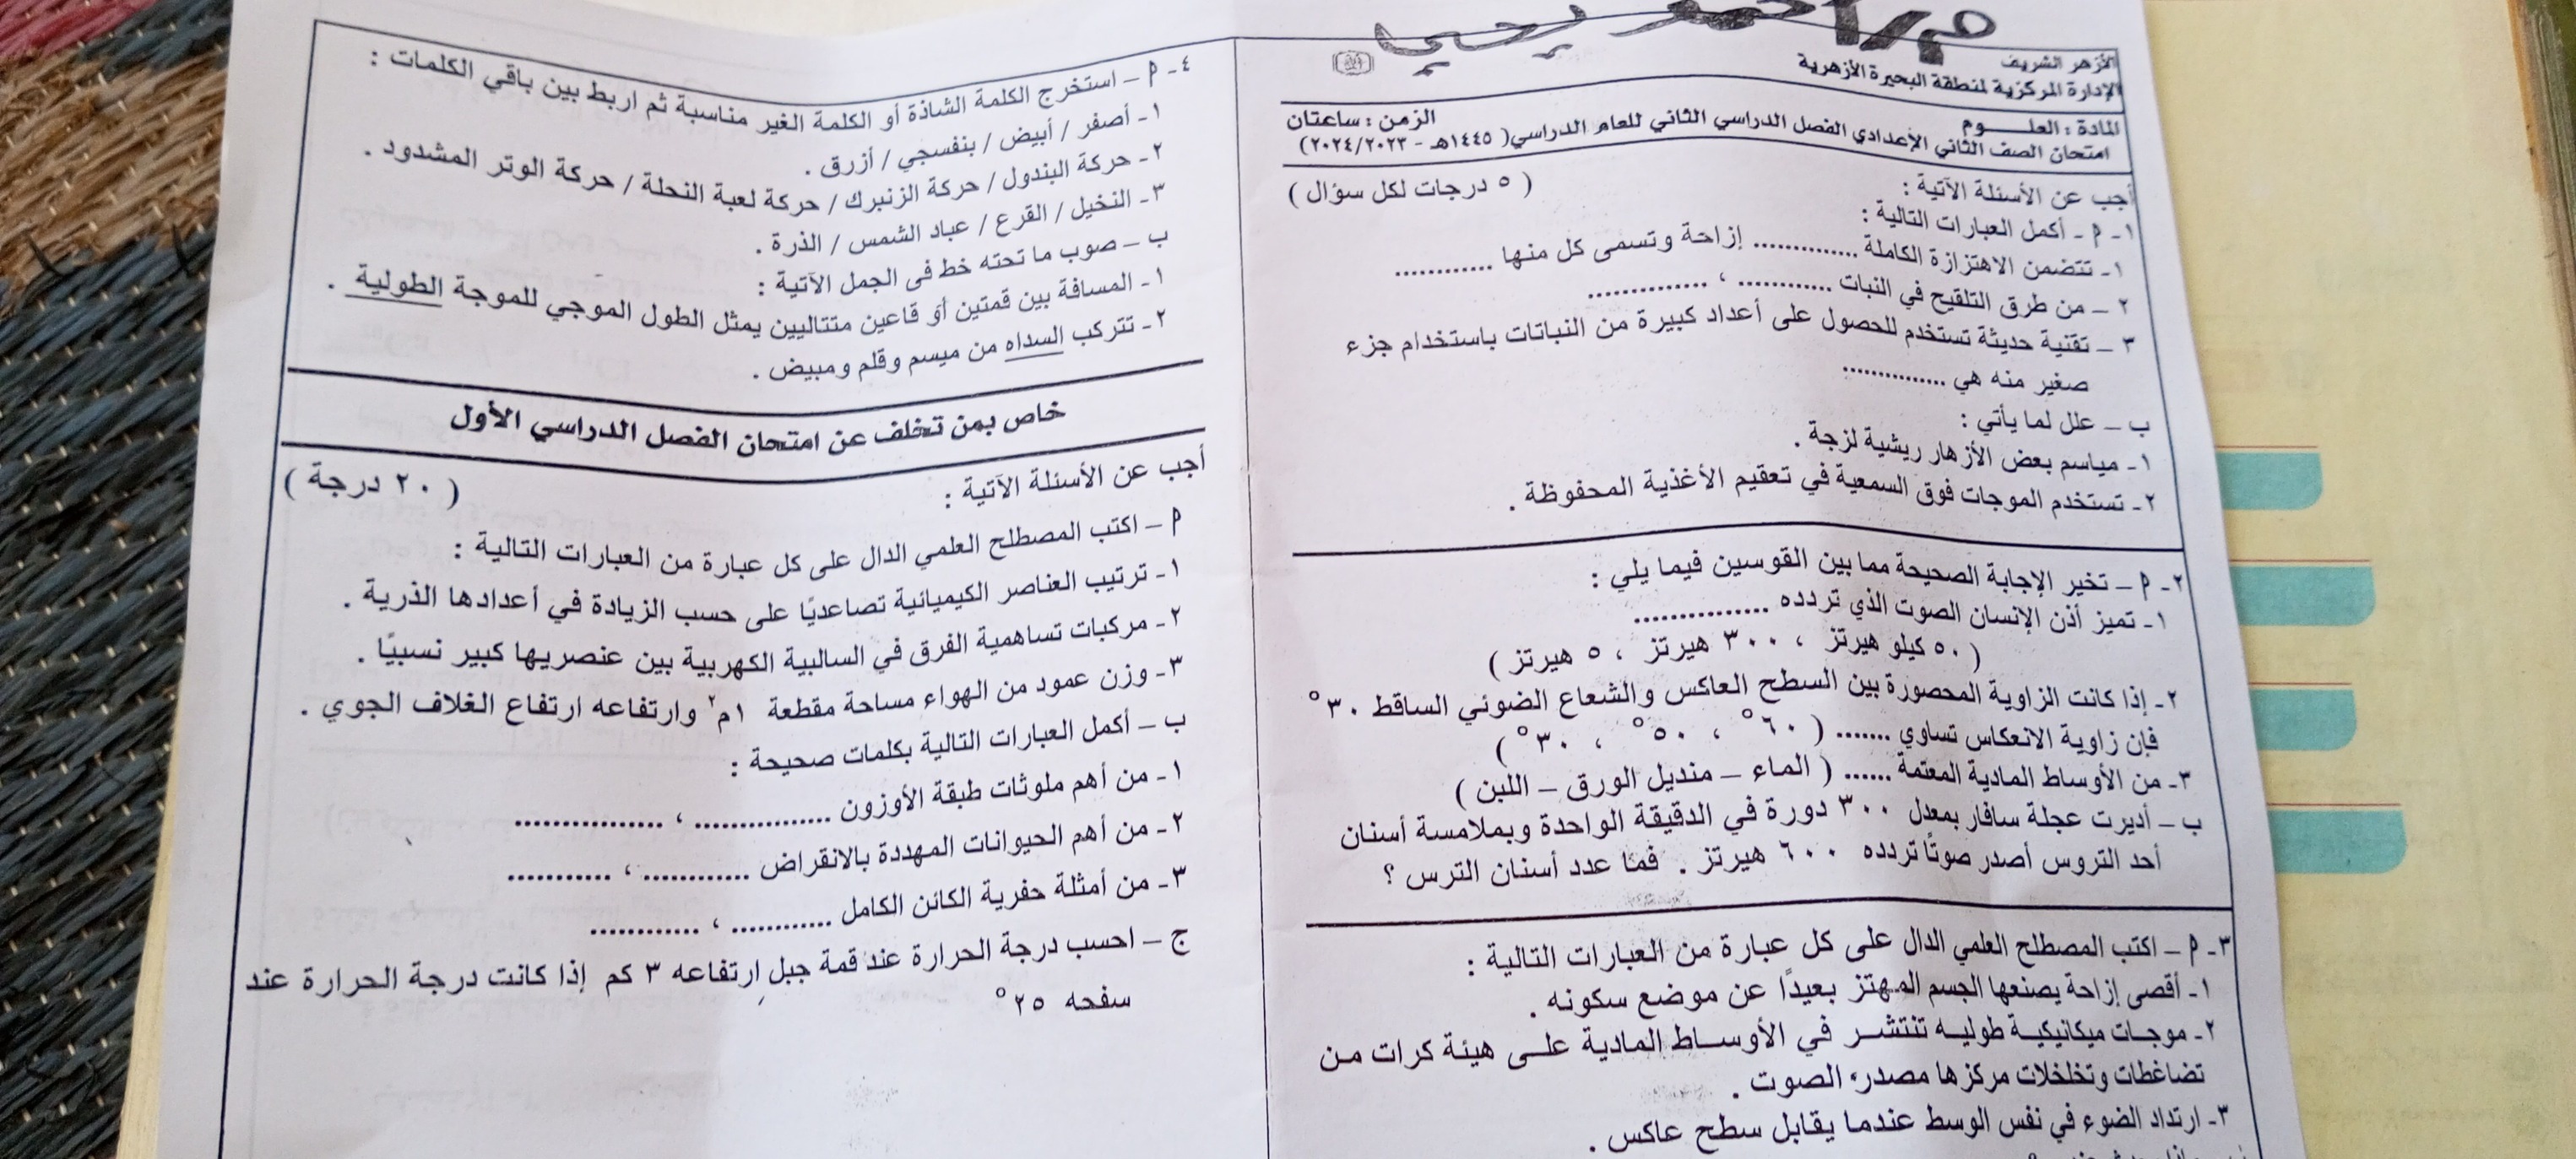 م/أحمد يحيي
الأزهر الشريف
الإدارة المركزية لمنطقة البحيرة الأزهرية
المادة : العلـــــوم
الزمن : ساعتان
امتحان الصف الثاني الإعدادي الفصل الدراسي الثاني للعام الدراسي( ١٤٤٥هـ - ٢٠٢٤/٢٠٢٣)
أجب عن الأسئلة الآتية :
( ٥ درجات لكل سؤال )
١- م - أكمل العبارات التالية :
١- تتضمن الاهتزازة الكاملة ............. إزاحة وتسمى كل منها ............
٢ – من طرق التلقيح في النبات ............ ، ...............
٣ – تقنية حديثة تستخدم للحصول على أعداد كبيرة من النباتات باستخدام جزء
صغير منه هي ..............
ب – علل لما يأتي :
١- مياسم بعض الأزهار ريشية لزجة .
٢- تستخدم الموجات فوق السمعية في تعقيم الأغذية المحفوظة .
٢- م – تخير الإجابة الصحيحة مما بين القوسين فيما يلي :
١- تميز أذن الإنسان الصوت الذي تردده ................
( ٥٠ كيلو هيرتز ، ٣٠٠ هيرتز ، ٥ هيرتز )
٢- إذا كانت الزاوية المحصورة بين السطح العاكس والشعاع الضوئي الساقط ٣٠°
فإن زاوية الانعكاس تساوي ....... ( ٦٠° ، ٥٠° ، ٣٠° )
٣- من الأوساط المادية المعتمة ...... ( الماء – منديل الورق – اللبن )
ب – أديرت عجلة سافار بمعدل ٣٠٠ دورة في الدقيقة الواحدة وبملامسة أسنان
أحد التروس أصدر صوتًا تردده ٦٠٠ هيرتز . فما عدد أسنان الترس ؟
٣- م – اكتب المصطلح العلمي الدال على كل عبارة من العبارات التالية :
١- أقصى إزاحة يصنعها الجسم المهتز بعيدًا عن موضع سكونه .
٢- موجـات ميكانيكيـة طوليـه تنتشـر في الأوسـاط المادية علـى هيئة كرات مـن
تضاغطات وتخلخلات مركزها مصدر الصوت .
٣- ارتداد الضوء في نفس الوسط عندما يقابل سطح عاكس .
٤- م – استخرج الكلمة الشاذة أو الكلمة الغير مناسبة ثم اربط بين باقي الكلمات :
١- أصفر / أبيض / بنفسجي / أزرق .
٢- حركة البندول / حركة الزنبرك / حركة لعبة النحلة / حركة الوتر المشدود .
٣- النخيل / القرع / عباد الشمس / الذرة .
ب – صوب ما تحته خط فى الجمل الآتية :
١- المسافة بين قمتين أو قاعين متتاليين يمثل الطول الموجي للموجة الطولية .
٢- تتركب السداه من ميسم وقلم ومبيض .
خاص بمن تخلف عن امتحان الفصل الدراسي الأول
أجب عن الأسئلة الآتية :
( ٢٠ درجة )
م – اكتب المصطلح العلمي الدال على كل عبارة من العبارات التالية :
١- ترتيب العناصر الكيميائية تصاعديًا على حسب الزيادة في أعدادها الذرية .
٢- مركبات تساهمية الفرق في السالبية الكهربية بين عنصريها كبير نسبيًا .
٣- وزن عمود من الهواء مساحة مقطعة ١م٢ وارتفاعه ارتفاع الغلاف الجوي .
ب – أكمل العبارات التالية بكلمات صحيحة :
١- من أهم ملوثات طبقة الأوزون ................ ، .................
٢- من أهم الحيوانات المهددة بالانقراض ............ ، ............
٣- من أمثلة حفرية الكائن الكامل ............ ، .............
ج – احسب درجة الحرارة عند قمة جبل ارتفاعه ٣ كم إذا كانت درجة الحرارة عند
سفحه ٢٥°